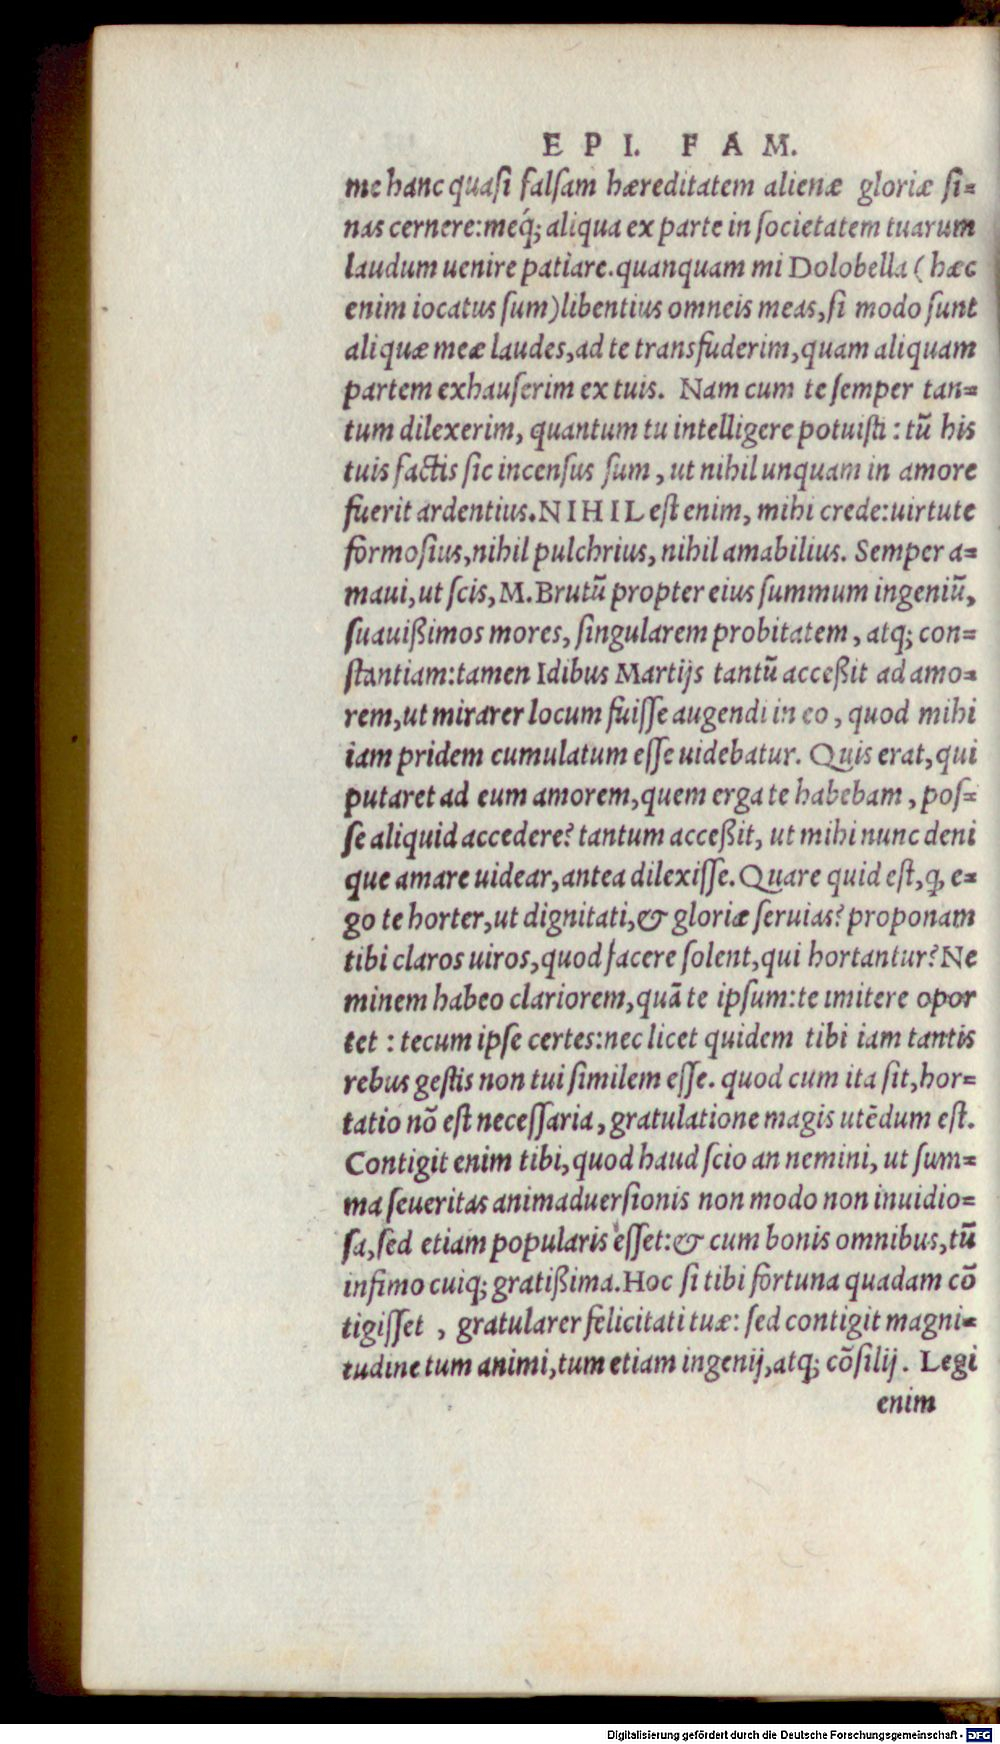 EPI. FAM.
me hanc quaſi falſam hæreditatem alienæ gloriæ ſi=
nas cernere:meq́; aliqua ex parte in ſocietatem tuarum
laudum uenire patiare.quanquam mi Dolobella (hæc
enim iocatus ſum)libentius omneis meas,ſi modo ſunt
aliquæ meæ laudes,ad te transfuderim,quam aliquam
partem exhauſerim ex tuis. Nam cum te ſemper tan=
tum dilexerim, quantum tu intelligere potuiſti : tū his
tuis factis ſic incenſus ſum, ut nihil unquam in amore
fuerit ardentius.NIHIL eſt enim, mihi crede:uirtute
formoſius,nihil pulchrius, nihil amabilius. Semper a=
maui,ut ſcis, M.Brutū propter eius ſummum ingeniū,
ſuauißimos mores, ſingularem probitatem, atq; con=
ſtantiam:tamen Idibus Martijs tantū acceßit ad amo=
rem,ut mirarer locum fuiſſe augendi in eo, quod mihi
iam pridem cumulatum eſſe uidebatur. Quis erat,qui
putaret ad eum amorem,quem erga te habebam, poſ=
ſe aliquid accedere? tantum acceßit, ut mihi nunc deni
que amare uidear,antea dilexiſſe.Quare quid eſt,q, e=
go te horter,ut dignitati,& gloriæ ſeruias? proponam
tibi claros uiros,quod facere ſolent,qui hortantur?Ne
minem habeo clariorem,quā te ipſum:te imitere opor
tet : tecum ipſe certes:nec licet quidem tibi iam tantis
rebus geſtis non tui ſimilem eſſe. quod cum ita ſit,hor=
tatio nō eſt neceſſaria, gratulatione magis utēdum eſt.
Contigit enim tibi,quod haud ſcio an nemini, ut ſum=
ma ſeueritas animaduerſionis non modo non inuidio=
ſa,ſed etiam popularis eſſet:& cum bonis omnibus,tū
infimo cuiq; gratißima.Hoc ſi tibi fortuna quadam cō
tigiſſet , gratularer felicitati tuæ: ſed contigit magni=
tudine tum animi,tum etiam ingenij,atq; cōſilij. Legi
enim
Digitalisierung gefördert durch die Deutsche Forschungsgemeinschaft - DFG